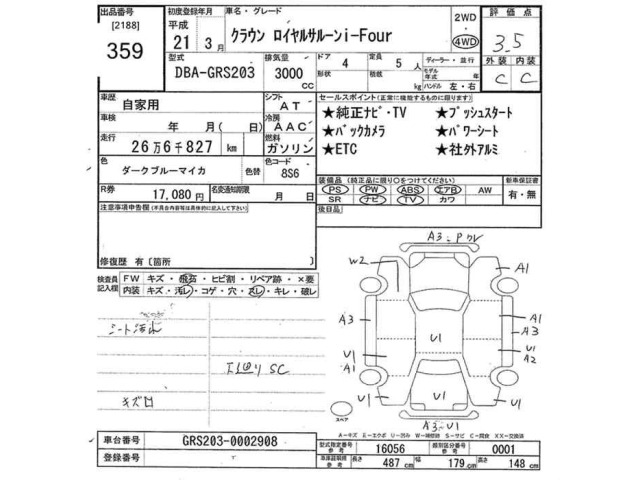 出品番号
[2188]
359
初度登録年月
平成
21 3月
車名・グレード
クラウン ロイヤルサルーンi-Four
2WD
4WD
評価点
3.5
型式
DBA-GRS203
排気量
3000
CC
ドア
4
形状
定員
5 人
積載
kg
ディーラー・並行
モデル
年式 年
ハンドル 左・右
外装 内装
C C
車歴
自家用
シフト
AT
車検
年 月( 日)
冷房
AAC
走行
26万6千827 km
燃料
ガソリン
色
ダークブルーマイカ
色替
色コード
8S6
R券
17,080円
名変通知期限
月 日
セールスポイント(正常に機能するものに限ります)
★純正ナビ・TV ★プッシュスタート
★バックカメラ ★パワーシート
★ETC ★社外アルミ
装備品 (純正品に限り○をつけてください)
PS PW ABS エアB AW
SR ナビ TV カワ
新車保証書
有・無
後日品
注意事項申告欄(不具合内容等は具体的に記入して下さい)
修復歴 有〔箇所 〕
検査員
記入欄
FW キズ・飛石・ヒビ割・リペア跡・×要
内装 キズ・汚レ・コゲ・穴・スレ・キレ・破レ
シート汚れ
キズ凹
SC
A3
W2
A1
A3
A1
A3
U1
U1
A1
U1
A2
U1
U1
U1
A3 U1
スペア
A－キズ E－エクボ U－凹み W－補修跡 S－サビ C－腐食 XX－交換済
車台番号
GRS203-0002908
登録番号
型式指定番号
参考
16056
類別区分番号
参考
0001
車体寸法
参考
長さ
487 cm
幅
179 cm
高さ
148 cm